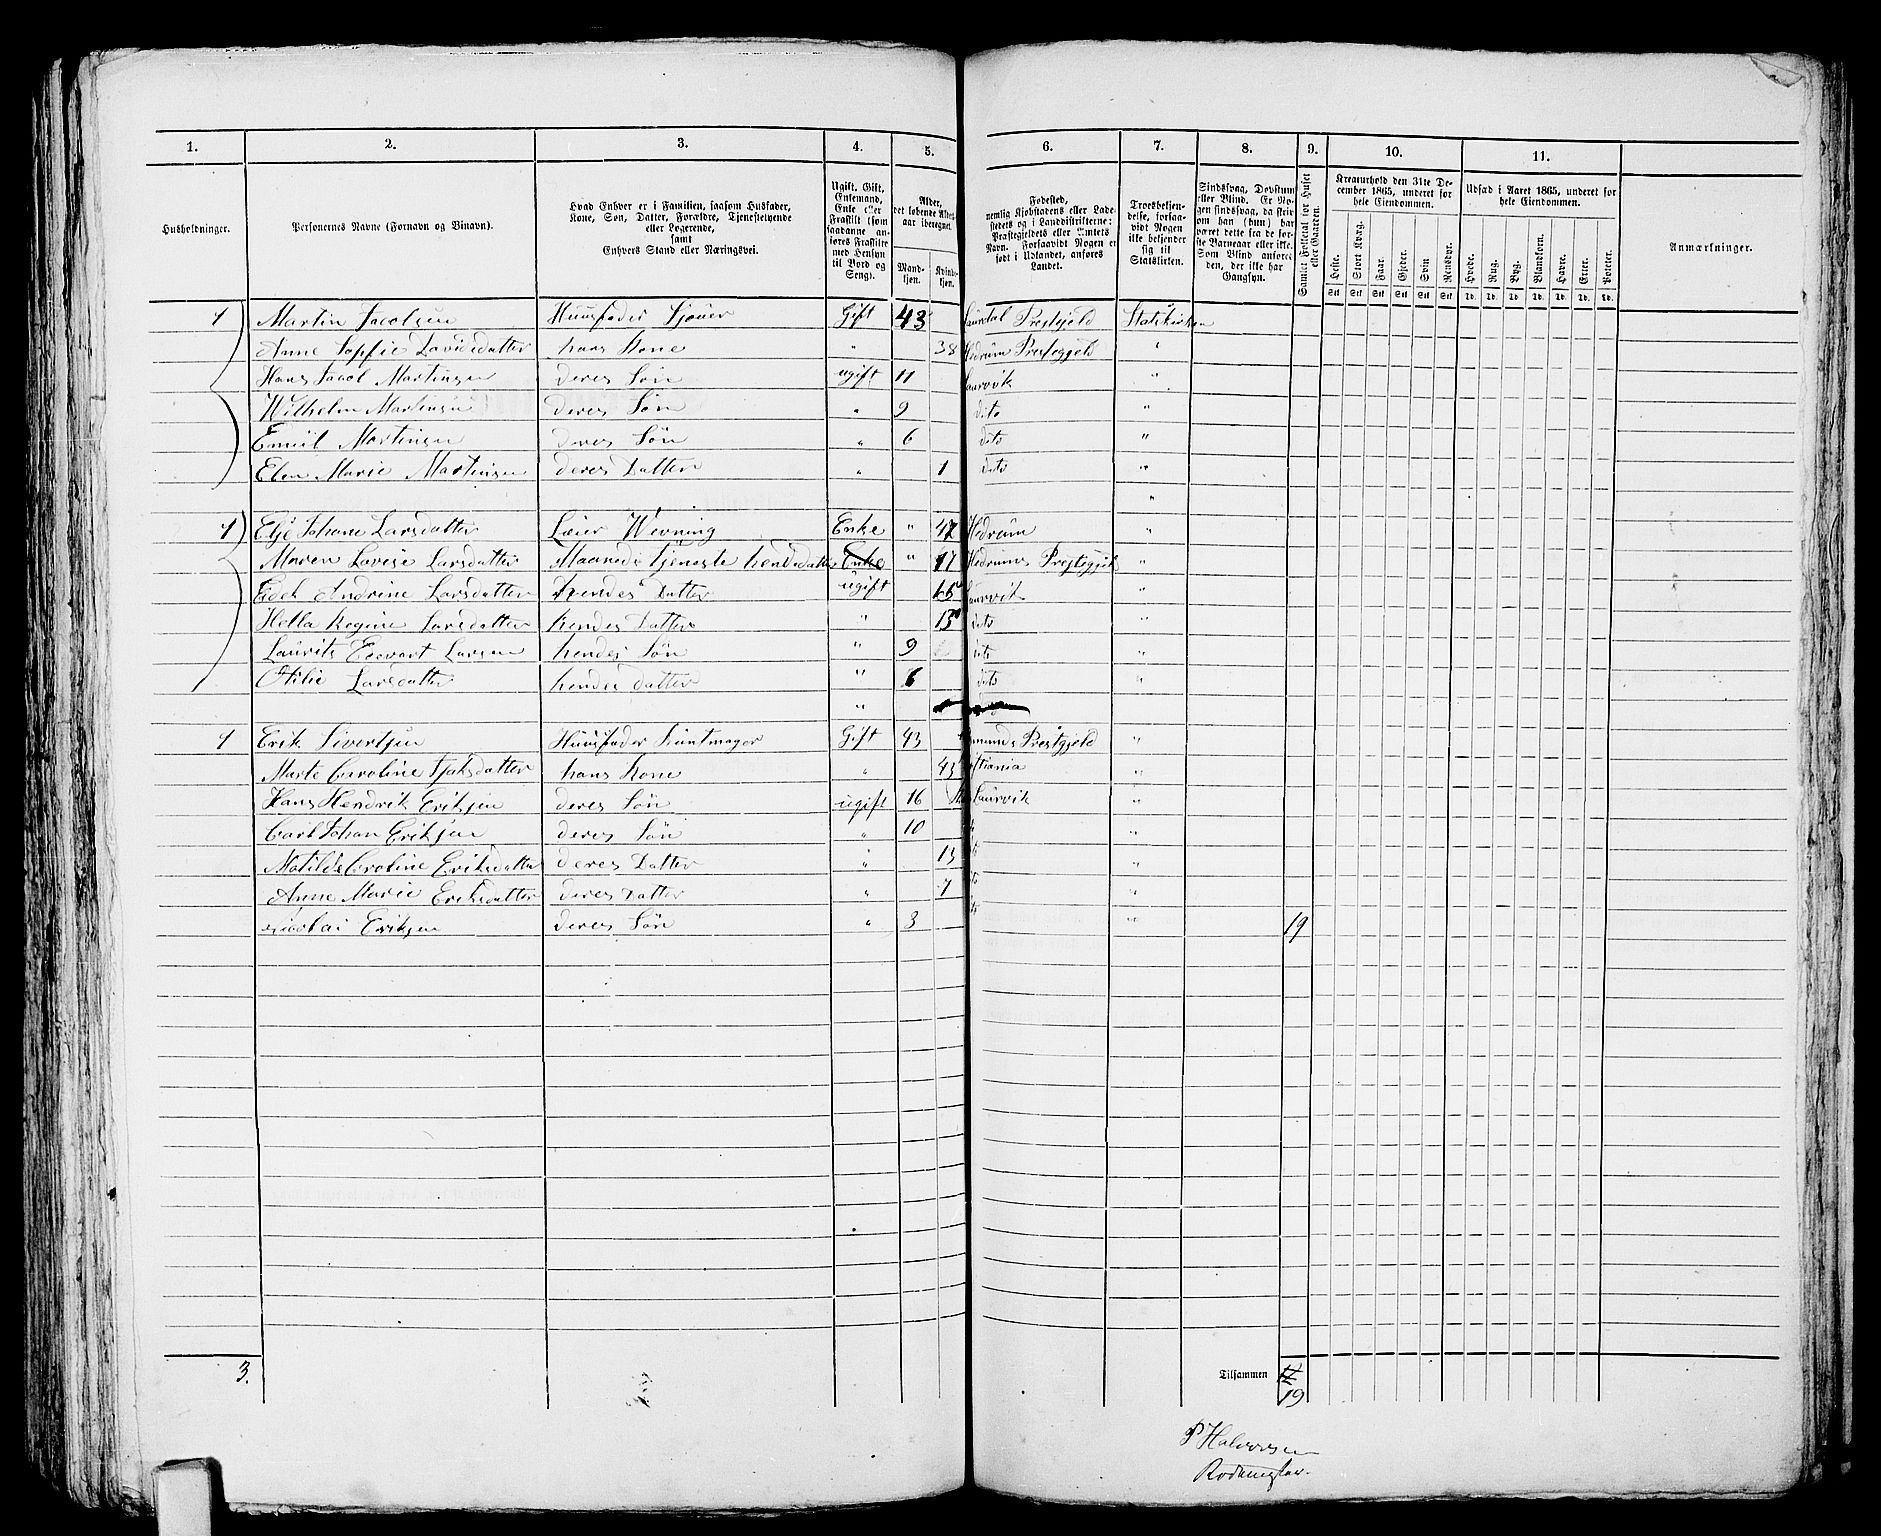 1. 2. 3. 4. 5. 6. 7. 8. 9. 10. 11.
Husholdninger.
Personernes Navne (Fornavn og Binavn).
Hvad Enhver er i Familien, saasom Husfader, Kone, Søn, Datter, Forældre, Tjenestetyende eller Logerende, samt Enhvers Stand eller Næringsvei.
Ugift, Gift, Enkemand, Enke eller Fraskilt
Alder, det løbende Alders-aar iberegnet.
Mand-kjøn. Kvinde-kjøn.
Fødested, nemlig Kjøbstadens eller Lade-stedets og i Landdistrikterne: Præstegjeldets eller Amtets Navn. Forsaavidt Nogen er født i Udlandet, anføres Landet.
Troesbekjen-delse, forsaa-vidt Nogen ikke bekjender sig til Statskirken.
Sindssvag, Døvstum eller Blind. Er No-gen sindssvag, da skriv om han (hun) har været dette fra de før-ste Barneaar eller ikke. Som Blind anføres den, der ikke har Gangsyn.
Samlet Folketal for Huset eller Gaarden.
Kreaturhold den 31te De-cember 1865, underet for hele Eiendommen.
Heste. Stort Kvæg. Faar. Gjeder. Svin Rensdyr.
Udsæd i Aaret 1865, underet for hele Eiendommen.
Hvede. Rug. Byg. Blandkorn. Havre. Erter. Poteter.
Anmærkninger.
1 Martin Jacobsen Huusfader Sjouer Gift 43 Prestgjeld Statskirken
Anne Sopfie Davidsdatter hans Kone " 38 Hedrum Prestegjeld "
Hans Jacob Martinsen deres Søn ugift 11 Laurvik "
Wilhelm Martinsen deres Søn " 9 dito "
Emiil Martinsen deres Søn " 6 dito "
Elen Marie Martinsen deres Datter " 1 dito "
"
1 Johane Larsdatter Enke " 47 Hedrum "
Maren Lovise Larsdatter Maaneds tjeneste hendes datter Enke " 17 Hedrums Prestegjeld "
Andrine Larsdatter hendes Datter ugift Laurvik "
Regine Larsdatter hendes Datter " 13 dito "
Laurits Larsen hendes Søn " 9 dito "
Otilie Larsdatter hendes datter " 6 dito "
"
1 Erik Sivertsen Huusfader Gift 43 Prestgjeld "
Marte Caroline hans Kone " 43 stiania "
Hans Hendrik Eriksen deres Søn ugift 16 Laurvik "
Carl Johan Eriksen deres Søn " 10 "
Matilde Caroline Eriksdatter deres Datter " 13 "
Anne Marie Eriksdatter deres Datter " 7 "
Nicolai Eriksen deres Søn " 3 " 19
3. Tilsammen
19
P Halvorsen
Rodemester.